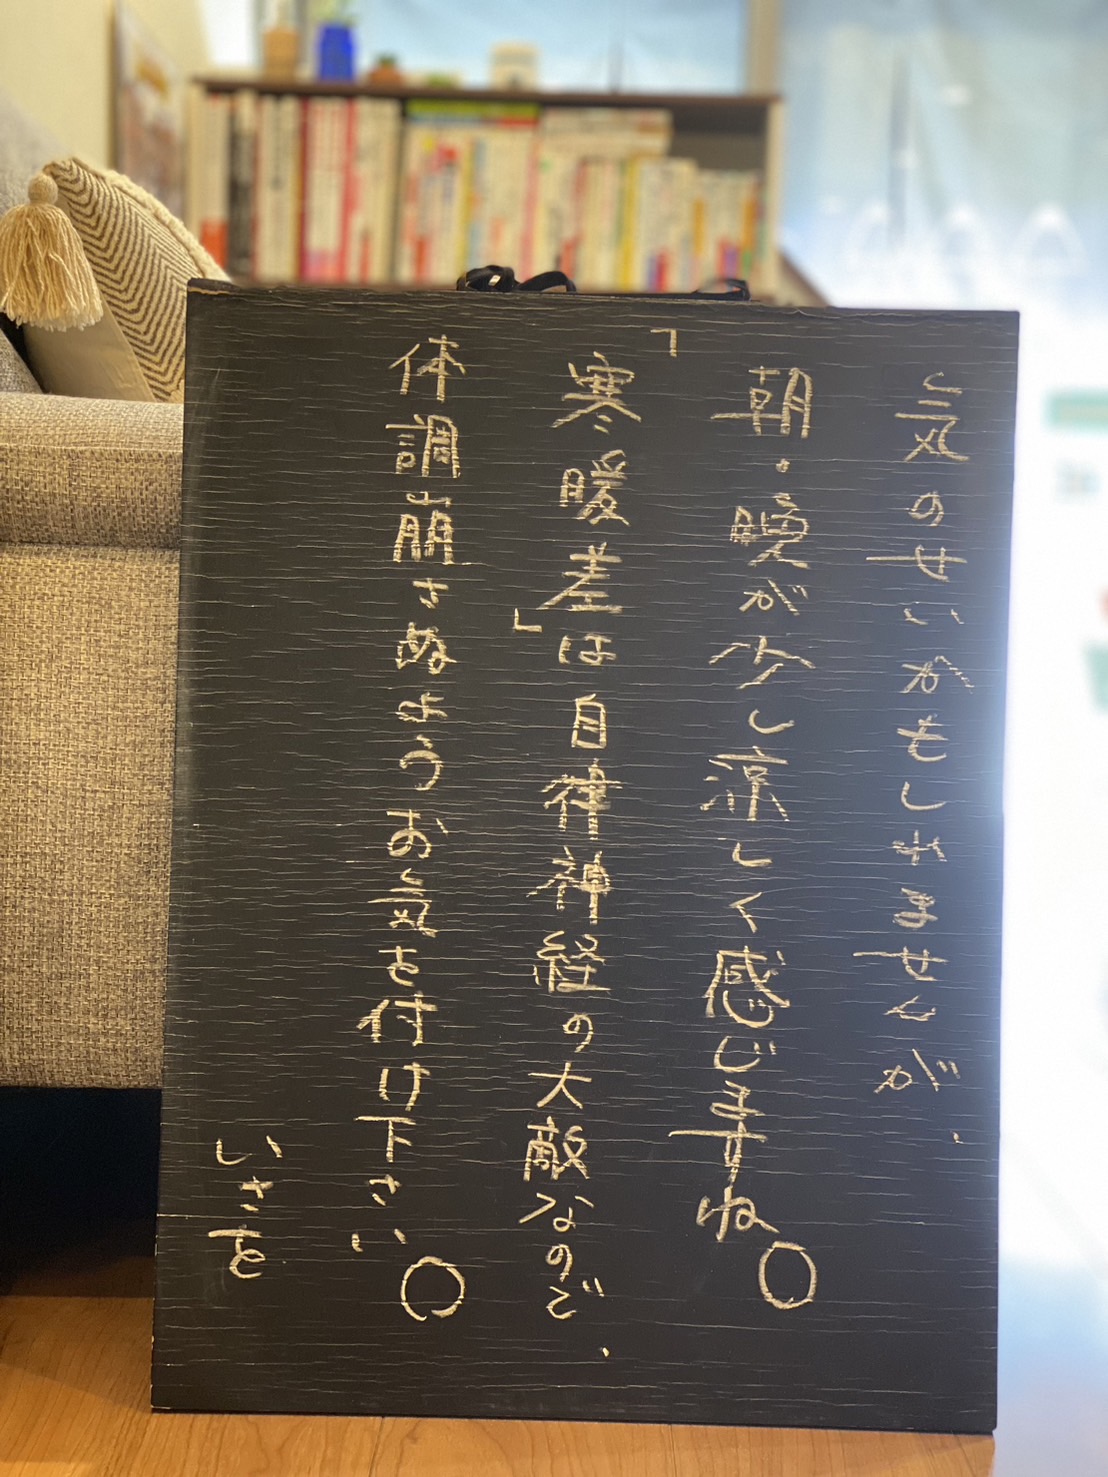 気のせいかもしれませんが、
朝・晩が少し涼しく感じますね。
「寒暖差」は自神神経の大敵なので、
体調崩さぬようお気を付け下さい。
いさを